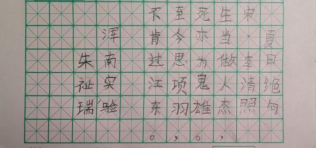 夏日绝句
宋·李清照
生当做人杰，
死亦为鬼雄。
至今思项羽，
不肯过江东。
浑南实验
朱祉瑞